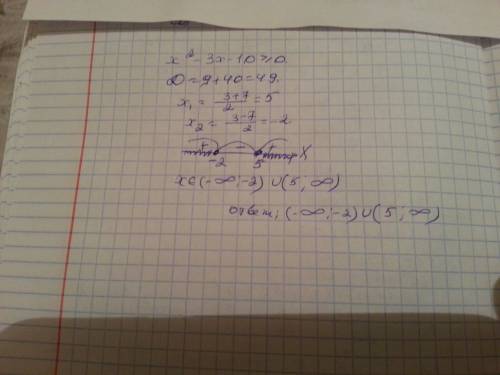 x² - 3x - 10 ≥ 0.
D = 9 + 40 = 49.
x₁ = (3+7)/2 = 5
x₂ = (3-7)/2 = -2
+ - + X
-2 5
x ∈ (-∞; -2) ∪ (5; ∞)
ответ; (-∞; -2) ∪ (5; ∞)